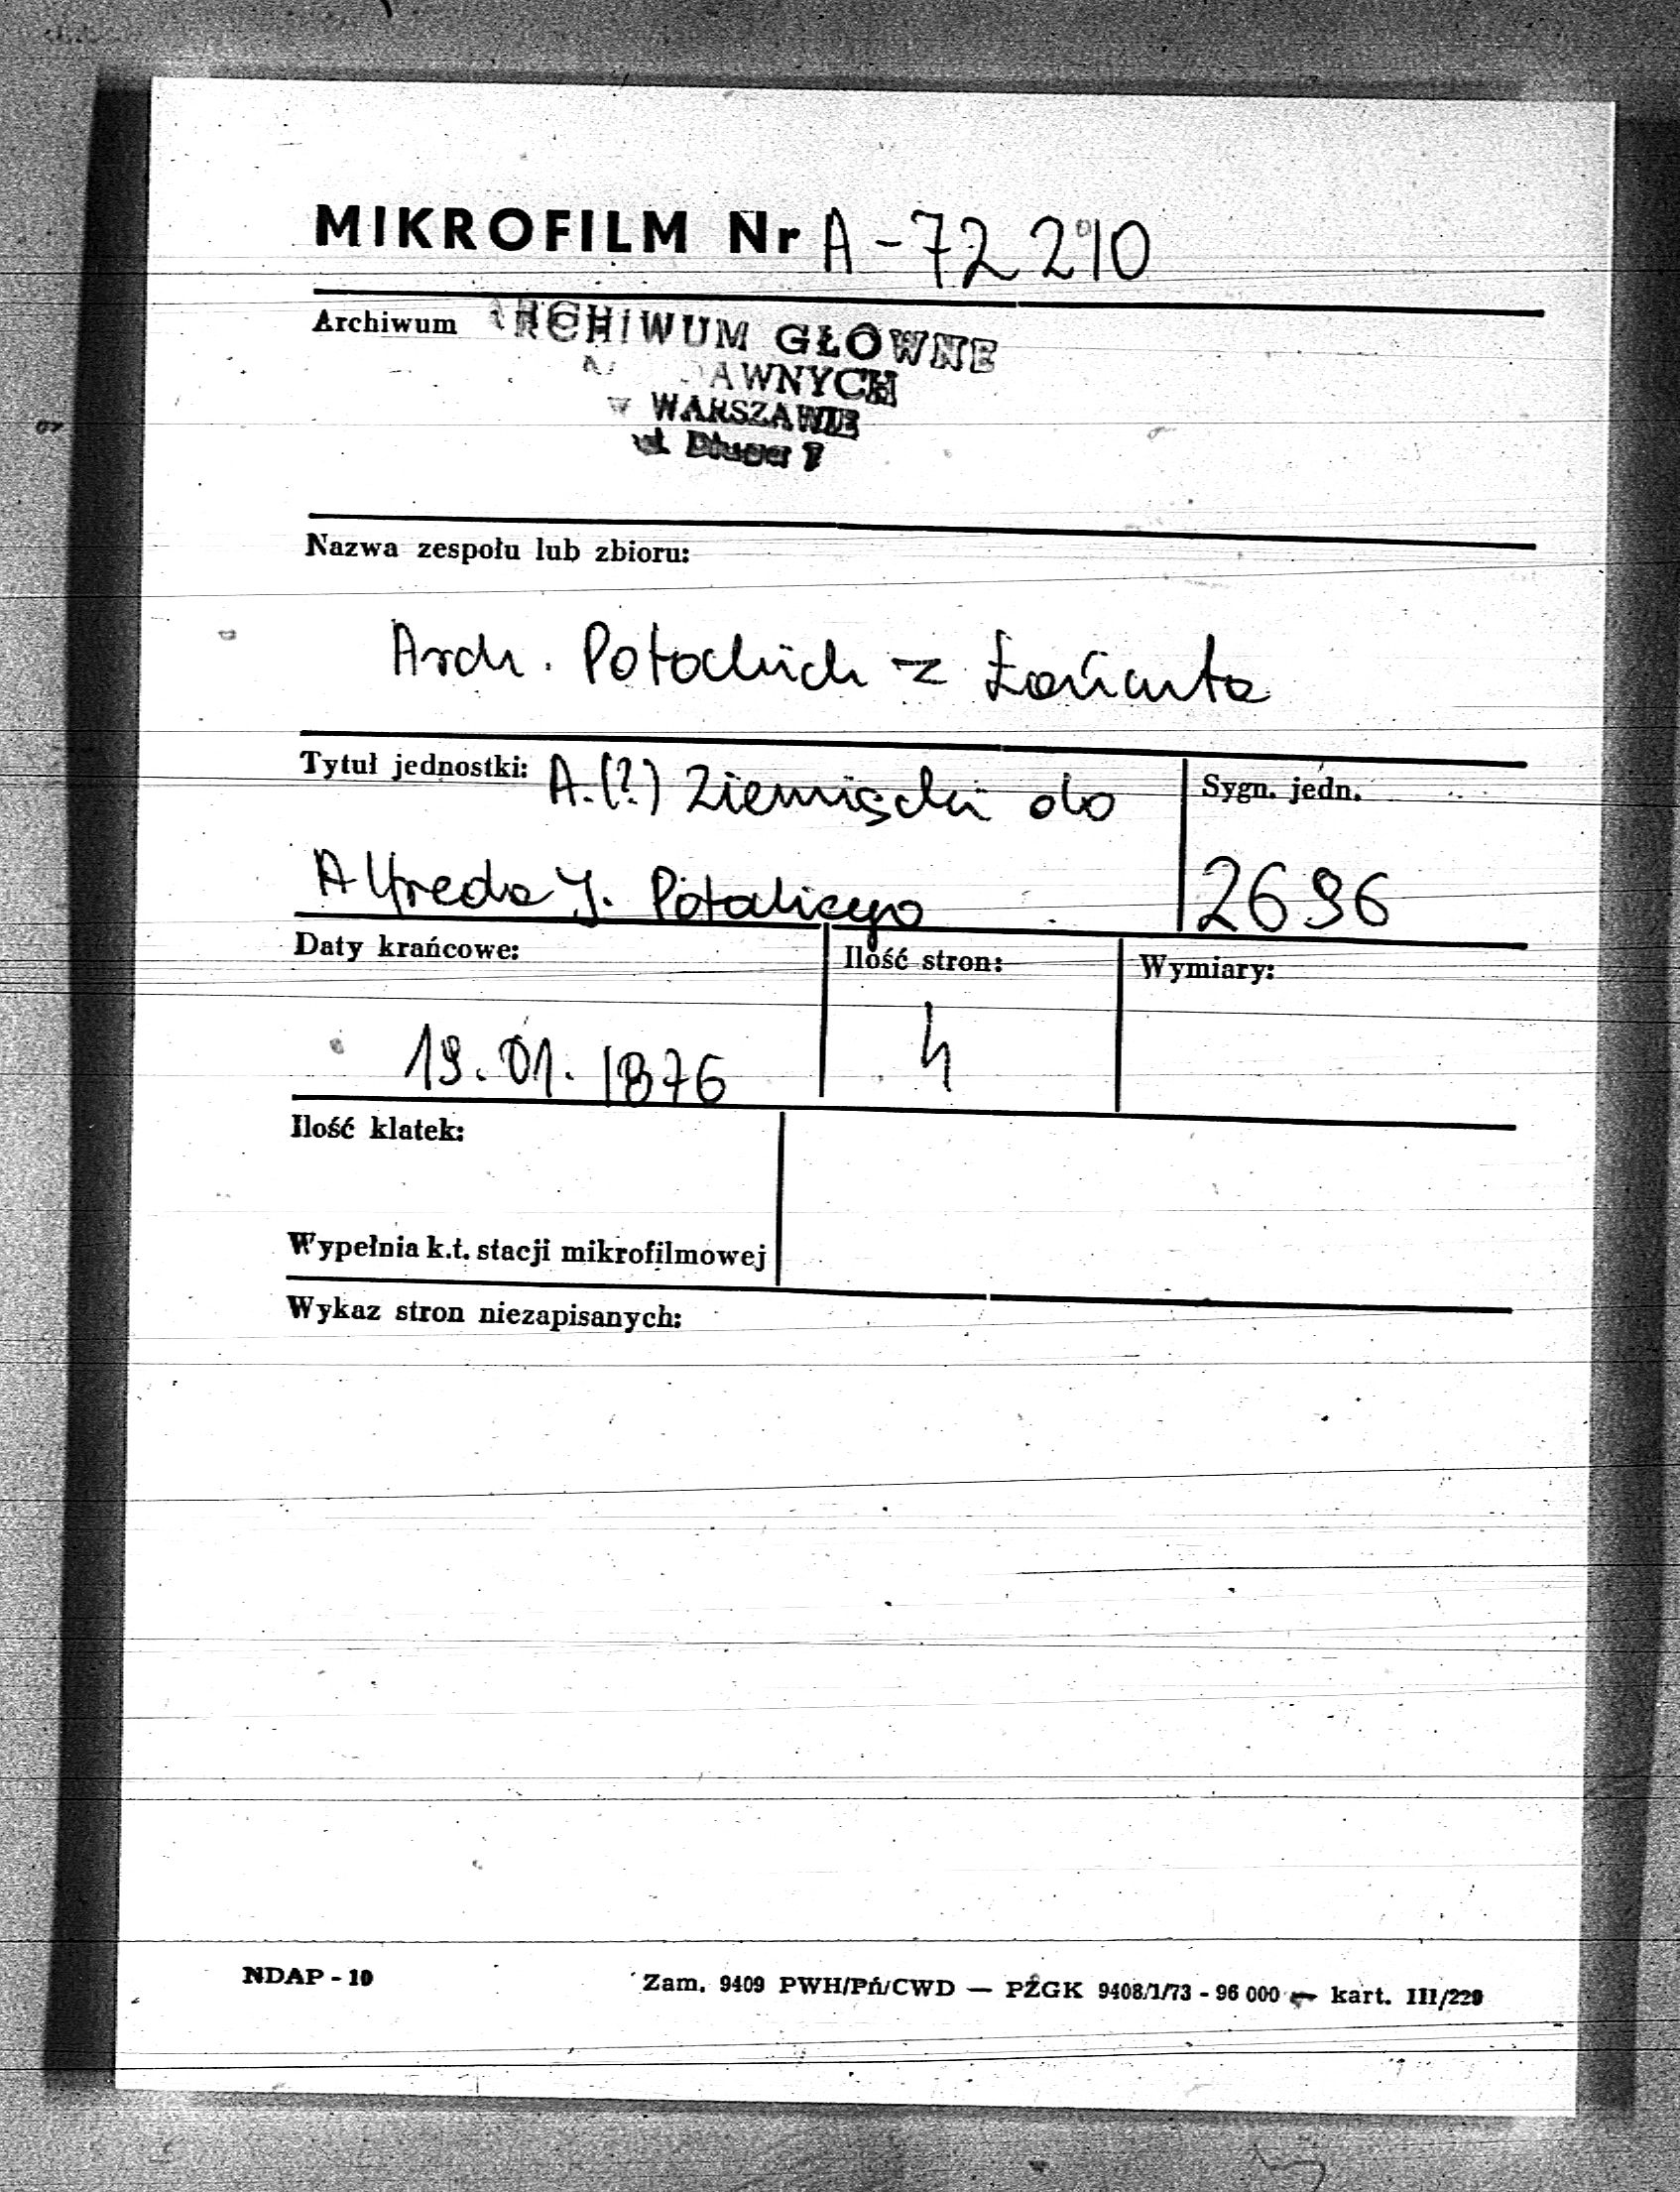 MIKROFILM Nr A-72210
Archiwum ARCHIWUM GŁÓWNE
AWNYCH
w WARSZAWIE
ul. Długa 7
Nazwa zespołu lub zbioru:
Arch. Potockich z Łańcuta
Tytuł jednostki: A.(?) Ziemięcki do
Alfreda J. Potockiego
Sygn. jedn.
2696
Daty krańcowe:
19.01.1876
Ilość stron:
4
Wymiary:
Ilość klatek:
Wypełnia k.t. stacji mikrofilmowej
Wykaz stron niezapisanych:
NDAP - 10
Zam. 9409 PWH/Pń/CWD — PZGK 9408/1/73 - 96 000 — kart. III/220